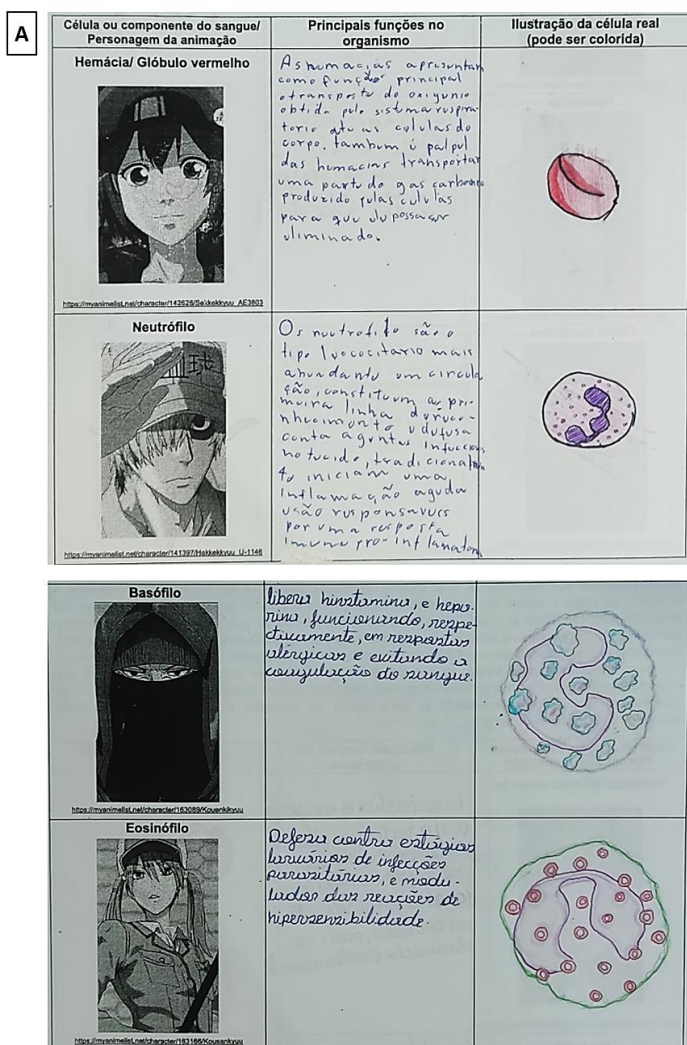 A
Célula ou componente do sangue/
Personagem da animação
Principais funções no
organismo
Ilustração da célula real
(pode ser colorida)
Hemácia/ Glóbulo vermelho
https://myanimelist.net/character/142628/Sekkekkyuu_AE3803
As humacias apresentam
como função principal
o transporte do oxigenio
obtido pelo sistema respira-
torio ate as celulas do
corpo, tambem é palpel
das humacias transportar
uma parte do gas carbono
produzido pelas celulas
para que ele possa ser
eliminado.
Neutrófilo
https://myanimelist.net/character/141397/Hakkekkyuu_U-1146
Os neutrofilo são o
tipo leucocitario mais
abundante em circula
ção, constituem a pri-
meira linha de reco-
nhecimento e defesa
conta agentes infeccios
no tecido, tradicionalm
te iniciam uma
inflamação aguda
e são responsaveis
por uma resposta
imune pro-inflamatori
Basófilo
https://myanimelist.net/character/163089/Kouenkikyuu
libera hinstamina, e hepa-
rina, funcionando, respe-
ctivamente, em respostas
alérgicas e evitando a
coagulação do sangue.
Eosinófilo
https://myanimelist.net/character/163166/Kousankyuu
Defesa contra estágios
larvários de infecções
parasitárias, e modu-
lados das reações de
hipersensibilidade.